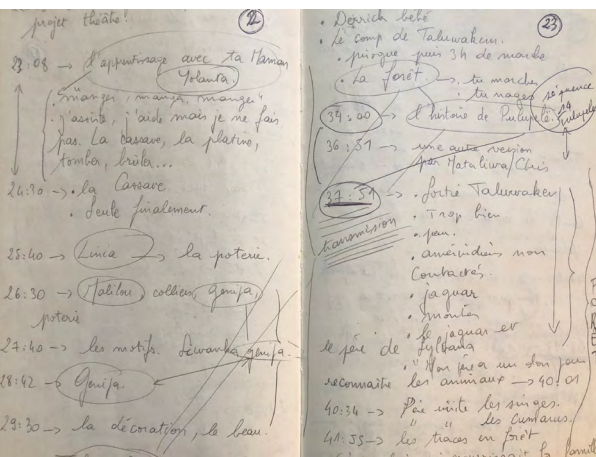 projet théâtre!
22
23:08 → l'apprentissage avec ta Maman
Yolanda.
"manger, manger, manger"
j'assiste, j'aide mais je ne fais
pas. La cassave, la platine,
tomber, brûler...
24:30 → la Cassave
Seule finalement
25:40 → Linia → la poterie.
26:30 → Malilou, colliers, genipa,
poterie
27:40 → les motifs. genipa.
28:42 → Genipa.
29:30 → la décoration, le beau.
23
Derrick bébé
Le camp de Taluwakem.
pirogue puis 3h de marche
La forêt → tu marches
tu nages
séquence
34:00 → l'histoire de
36:51 → une autre version
par Mataliwa/Chris
37:51 → forêt Taluwaken
transmission
Trop bien
peur.
amérindiens non
Contactés.
jaguar
montés
le jaguar et
le père de Sylvana
un don pour
reconnaître les animaux → 40:01
40:34 → Père imite les singes.
" " les
41:55 → les traces en forêt
la famille
FORET